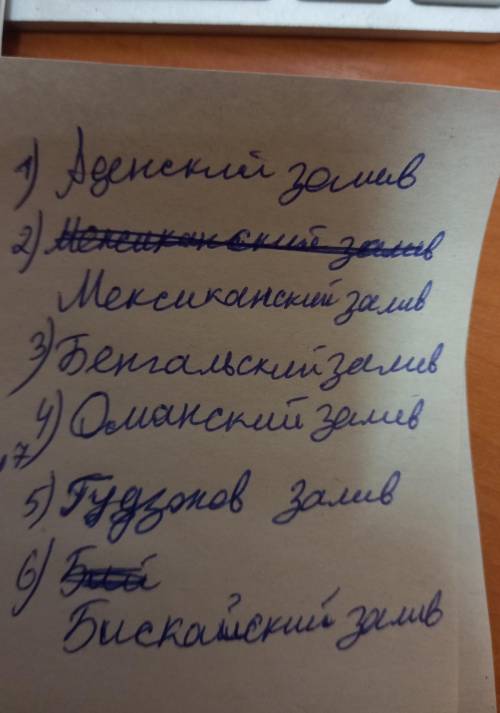 1) Аденский залив
2) Мексиканский залив
Мексиканский залив
3) Бенгальский залив
4) Оманский залив
,7
5) Гудзонов залив
6)
Бискайский залив